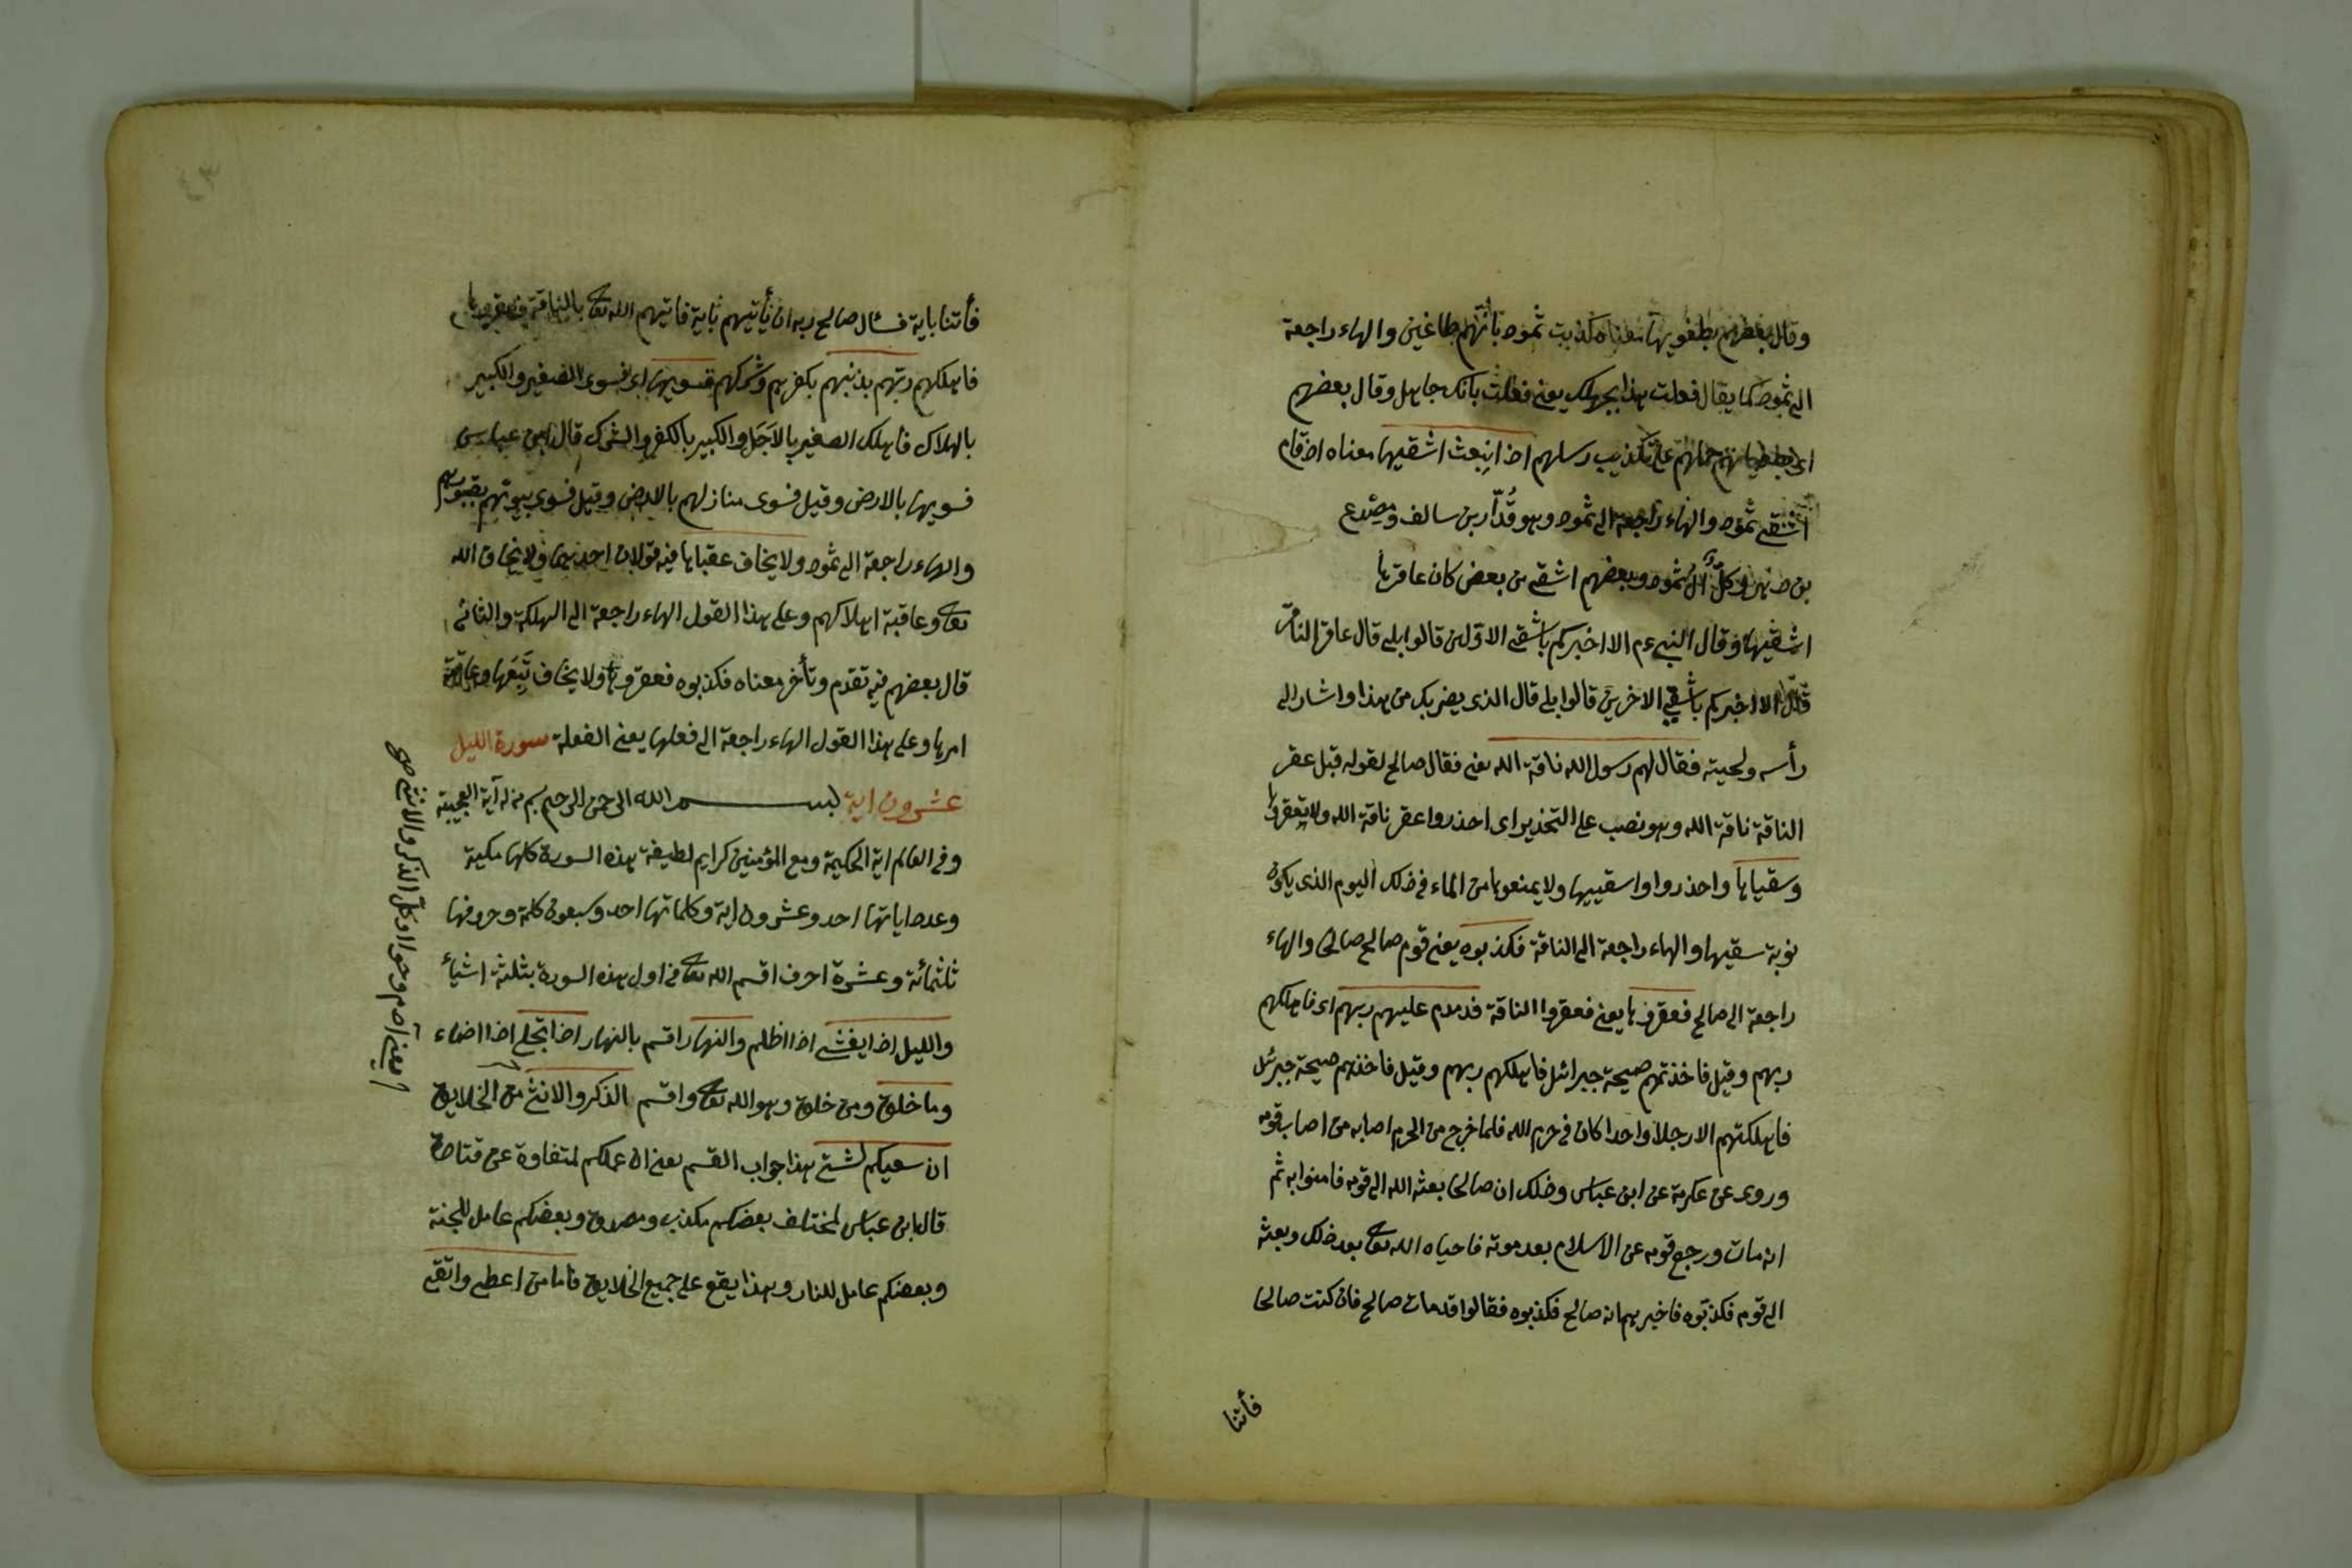 وقال بعضهم بطغويها معناه كذبت ثمود بانهم طاغين والهاء راجعة
الى ثمود كما يقال فعلت هذا بجهلك يعنى فعلت بانك جاهل وقال بعضهم
اى بطغيانهم حملهم على تكذيب رسلهم اذ انبعث اشقيها معناه اذ قام
اشقى ثمود والهاء راجعة الى ثمود وهو قُدّار بن سالف ومصدع
بن وكلّ آل ثمود وبعضهم اشقى من بعض كان عاقرها
اشقيها وقال النبى ءم الا اخبركم باشقى الاولين قالوا بلى قال عاقر الناقة
قال الا اخبركم باشقى الاخرين قالوا بلى قال الذى يضربك من هذا واشار الى
رأسه ولحيته فقال لهم رسول الله ناقة الله يعنى فقال صالح لقومه قبل عقر
الناقة ناقة الله وهو نصب على التحذير اى احذروا عقر ناقة الله ولا تعقروها
وسقياها واحذروا واسقييها ولا يمنعوها من الماء فى ذلك اليوم الذى يكون
نوبة سقيها والهاء راجعة الى الناقة فكذبوه يعنى قوم صالح صالحا والهاء
راجعة الى صالح فعقروها يعنى فعقروا الناقة فدمدم عليهم ربهم اى فاهلكهم
ربهم وقيل فاخذتهم صيحة جبرائل فاهلكهم ربهم وقيل فاخذهم صيحة جبرئل
فاهلكتهم الا رجلا واحدا كان فى حرم الله فلما خرج من الحرم اصابه من اصاب قومه
وروى عن عكرمة عن ابن عباس وذلك ان صالحا بعثه الله الى قومه فامنوا به ثم
انه مات ورجع قومه عن الاسلام بعد موته فاحياه الله تعا بعد ذلك وبعثه
الى قومه فكذبوه فاخبرهم انه صالح فكذبوه فقالوا قد مات صالح فان كنت صالحا
فأتنا
فأتنا باية فسئال صالح ربه ان يأتيهم باية فاتيهم الله تعا بالناقة فعقروها
فاهلكهم ربهم بذنبهم بكفرهم وشركهم فسويها اى فسوى الصغير والكبير
بالهلاك فاهلك الصغير بالاَجَل والكبير بالكفر والشرك قال ابن عباس
فسويها بالارض وقيل فسوى منازلهم بالارض وقيل فسوى بيوتهم بقبورهم
والهاء راجعة الى ثمود ولا يخاف عقباها فيه قولان احدهما ولا يخاف الله
تعا وعاقبة اهلاكهم وعلى هذا القول الهاء راجعة الى الهلكة والثانى
قال بعضهم فيه تقدم وتأخر معناه فكذبوه فعقروها ولا يخاف تَبِعَها وعاقبة
امرها وعلى هذا القول الهاء راجعة الى فعلها يعنى الفعلة سورة الليل
عشرون اية بسم الله الرحمن الرحيم بسم من له آية العجيبة
وفى العالم اية الحكيمة ومع المؤمنين كرايم لطيفة هذه السورة كلها مكية
وعدد اياتها احد وعشرون اية وكلماتها احد وسبعون كلمة وحروفها
ثلثمائة وعشرة احرف اقسم الله تعا فى اول هذه السورة بثلثة اشياء
والليل اذا يغشى اذا اظلم والنهار اقسم بالنهار اذا تجلى اذا اضاء
وما خلق ومن خلق وهو الله تعا واقسم الذكر والانثى من الخلايق
ان سعيكم لشتى هذا جواب القسم يعنى ان عملكم لمتفاوة عن قتادة
قال ابن عباس لمختلف بعضكم مكذب ومصدق وبعضكم عامل للجنة
وبعضكم عامل للنار وهذا يقع على جميع الخلايق فاما من اعطى واتقى
يعنى آدم وحوا وكل الذكر والانثى صح